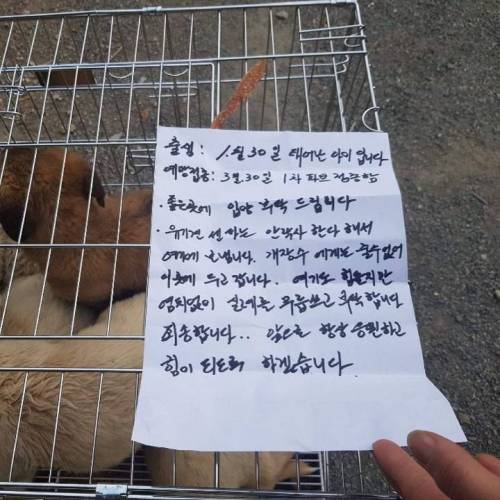 출생: 1월 30일 태어난 아이 입니다
예방접종: 3월 30일 1차 파보 접종함
· 좋은곳에 입양 부탁 드립니다
· 유기견 센타는 안락사 한다 해서
여기에 보냅니다. 개장수 에게는 줄수 없어
이곳에 두고 갑니다. 여기도 힘들지만
염치없이 실례를 무릅쓰고 부탁합니다
죄송합니다.. 앞으로 항상 응원하고
힘이 되도록 하겠습니다.